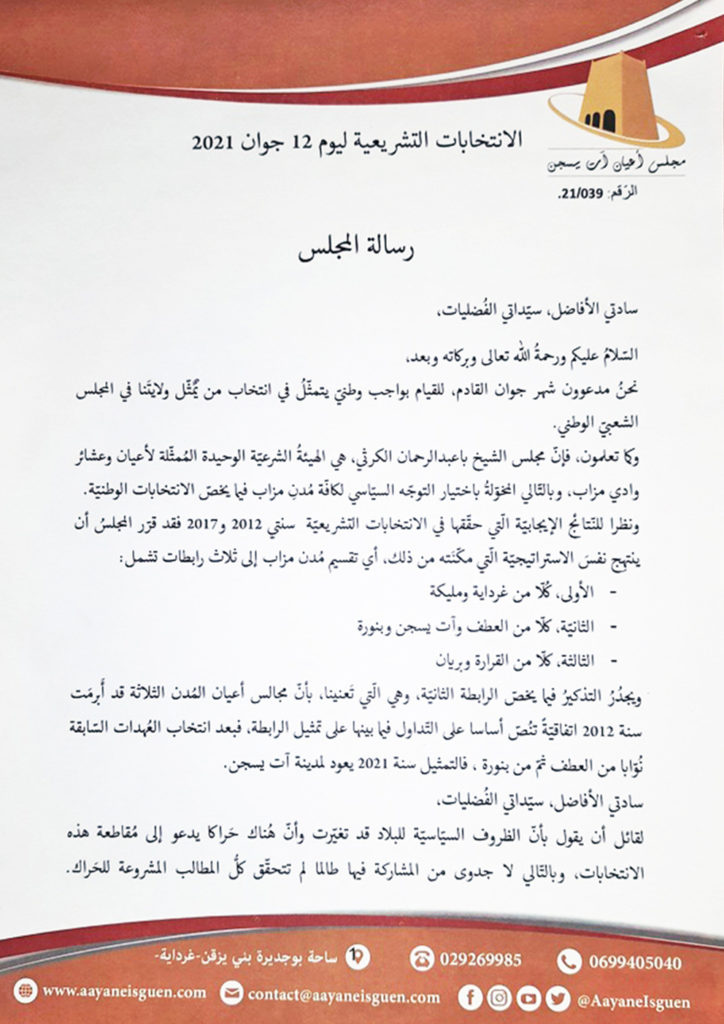 مجلس أعيان آت يسجن
الرّقم: 21/039.
الانتخابات التشريعية ليوم 12 جوان 2021
رسالة المجلس
سادتي الأفاضل، سيّداتي الفُضليات،
السّلامُ عليكم ورحمةُ الله تعالى وبركاته وبعد،
نحنُ مدعوون شهر جوان القادم، للقيام بواجب وطنيّ يتمثّلُ في انتخاب من يُمثّل ولايتَنا في المجلس
الشعبيّ الوطني.
وكما تعلمون، فإنّ مجلس الشيخ باعبدالرحمان الكرثي، هي الهيئةُ الشرعيّة الوحيدة المُمثّلة لأعيان وعشائر
وادي مزاب، وبالتّالي المخوّلةُ باختيار التوجّه السيّاسي لكافّة مُدنِ مزاب فيما يخصّ الانتخابات الوطنيّة.
ونظرا للنّتائج الإيجابيّة الّتي حقّقها في الانتخابات التشريعيّة سنتي 2012 و2017 فقد قرّر المجلسُ أن
ينتهِج نفسَ الاستراتيجيّة الّتي مكّنَته من ذلك، أي تقسيم مُدن مزاب إلى ثلاث رابطات تشمل:
- الأولى، كُلّا من غرداية ومليكة
- الثانيّة، كلّا من العطف وآت يسجن وبنورة
- الثالثة، كلّا من القرارة وبريان
ويجدُرُ التذكيرُ فيما يخصّ الرابطة الثانيّة، وهي الّتي تَعنينا، بأنّ مجالس أعيان المُدن الثلاثة قد أَبرمَت
سنة 2012 اتفاقيّةً تنُصّ أساسا على التّداول فيما بينها على تمثيل الرابطة، فبعد انتخاب العُهدات السّابقة
نُوّابا من العطف ثمّ من بنورة ، فالتمثيل سنة 2021 يعود لمدينة آت يسجن.
سادتي الأفاضل، سيّداتي الفُضليات،
لقائل أن يقول بأنّ الظروف السيّاسيّة للبلاد قد تغيّرت وأنّ هُناك حَراكا يدعو إلى مُقاطعة هذه
الانتخابات، وبالتّالي لا جدوى من المشاركة فيها طالما لم تتحقّق كلُّ المطالب المشروعة للحَراك.
0699405040 029269985 ساحة بوجديرة بني يزقن-غرداية-
www.aayaneisguen.com contact@aayaneisguen.com @AayaneIsguen